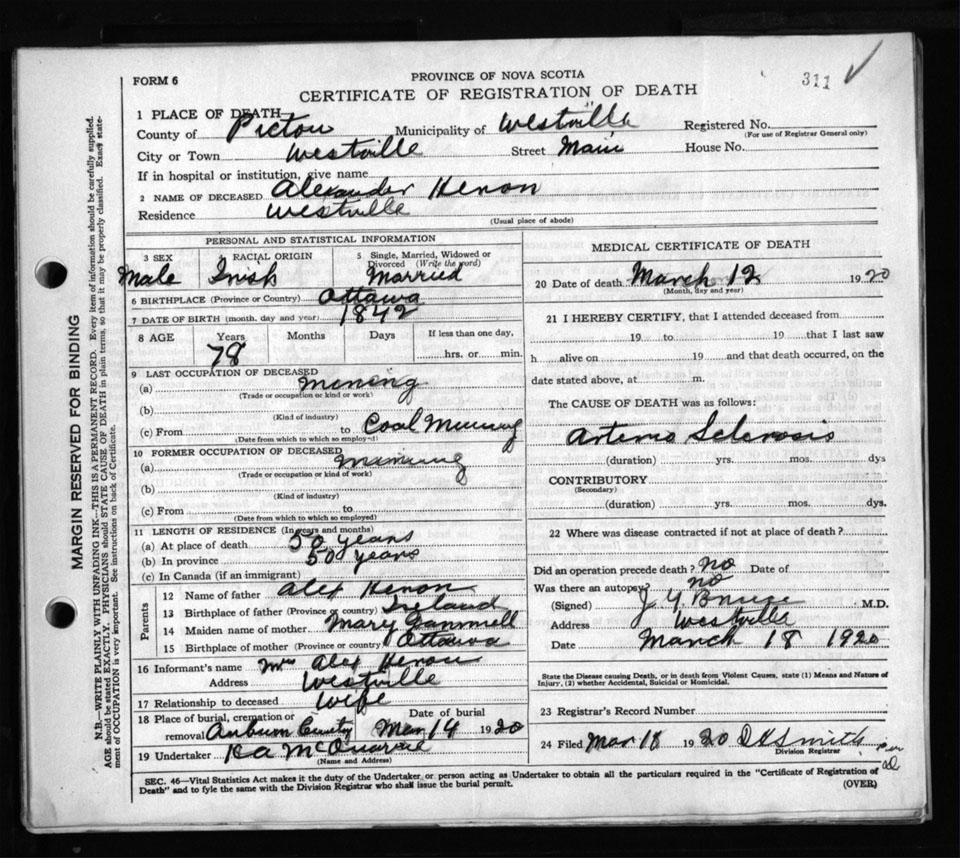 311
FORM 6
PROVINCE OF NOVA SCOTIA
CERTIFICATE OF REGISTRATION OF DEATH
1 PLACE OF DEATH
County of Pictou Municipality of Westville Registered No.
(For use of Registrar General only)
City or Town Westville Street Main House No.
If in hospital or institution, give name
2 NAME OF DECEASED Alexander Heron
Residence Westville
(Usual place of abode)
PERSONAL AND STATISTICAL INFORMATION
3 SEX 4 RACIAL ORIGIN 5 Single, Married, Widowed or Divorced (Write the word)
Male Irish Married
6 BIRTHPLACE (Province or Country) Ottawa
7 DATE OF BIRTH (month, day and year) 1842
8 AGE Years Months Days If less than one day,
78 hrs. or min.
9 LAST OCCUPATION OF DECEASED
(a) Mining
(Trade or occupation or kind or work)
(b)
(Kind of industry)
(c) From to Coal Mining
(Date from which to which so employed)
10 FORMER OCCUPATION OF DECEASED
(a) Mining
(Trade or occupation or kind of work)
(b)
(Kind of industry)
(c) From to
(Date from which to which so employed)
11 LENGTH OF RESIDENCE (In years and months)
(a) At place of death 50 years
(b) In province 50 years
(c) In Canada (if an immigrant)
Parents
12 Name of father Alex Heron
13 Birthplace of father (Province or country) Ireland
14 Maiden name of mother Mary Gammell
15 Birthplace of mother (Province or country) Ottawa
16 Informant's name Mrs Alex Heron
Address Westville
17 Relationship to deceased Wife
18 Place of burial, cremation or removal Auburn Date of burial Mar 14 1920
19 Undertaker McQuarrie
(Name and Address)
MEDICAL CERTIFICATE OF DEATH
20 Date of death March 12 1920
(Month, day and year)
21 I HEREBY CERTIFY, that I attended deceased from
19 to 19 that I last saw
h alive on 19 and that death occurred, on the
date stated above, at m.
The CAUSE OF DEATH was as follows:
Arterio Sclerosis
(duration) yrs. mos. dys
CONTRIBUTORY
(Secondary)
(duration) yrs. mos. dys.
22 Where was disease contracted if not at place of death?
Did an operation precede death? no Date of
Was there an autopsy? no
(Signed) J Y Bruce M.D.
Address Westville
Date March 18 1920
State the Disease causing Death, or in death from Violent Causes, state (1) Means and Nature of
Injury, (2) whether Accidental, Suicidal or Homicidal.
23 Registrar's Record Number
24 Filed Mar 18 1920 D H Smith
Division Registrar
SEC. 46—Vital Statistics Act makes it the duty of the Undertaker or person acting as Undertaker to obtain all the particulars required in the "Certificate of Registration of
Death" and to fyle the same with the Division Registrar who shall issue the burial permit.
(OVER)
MARGIN RESERVED FOR BINDING
N.B.—WRITE PLAINLY WITH UNFADING INK—THIS IS A PERMANENT RECORD. Every item of information should be carefully supplied.
AGE should be stated EXACTLY. PHYSICIANS should STATE CAUSE OF DEATH in plain terms, so that it may be properly classified. Exact state-
ment of OCCUPATION is very important. See instructions on back of Certificate.